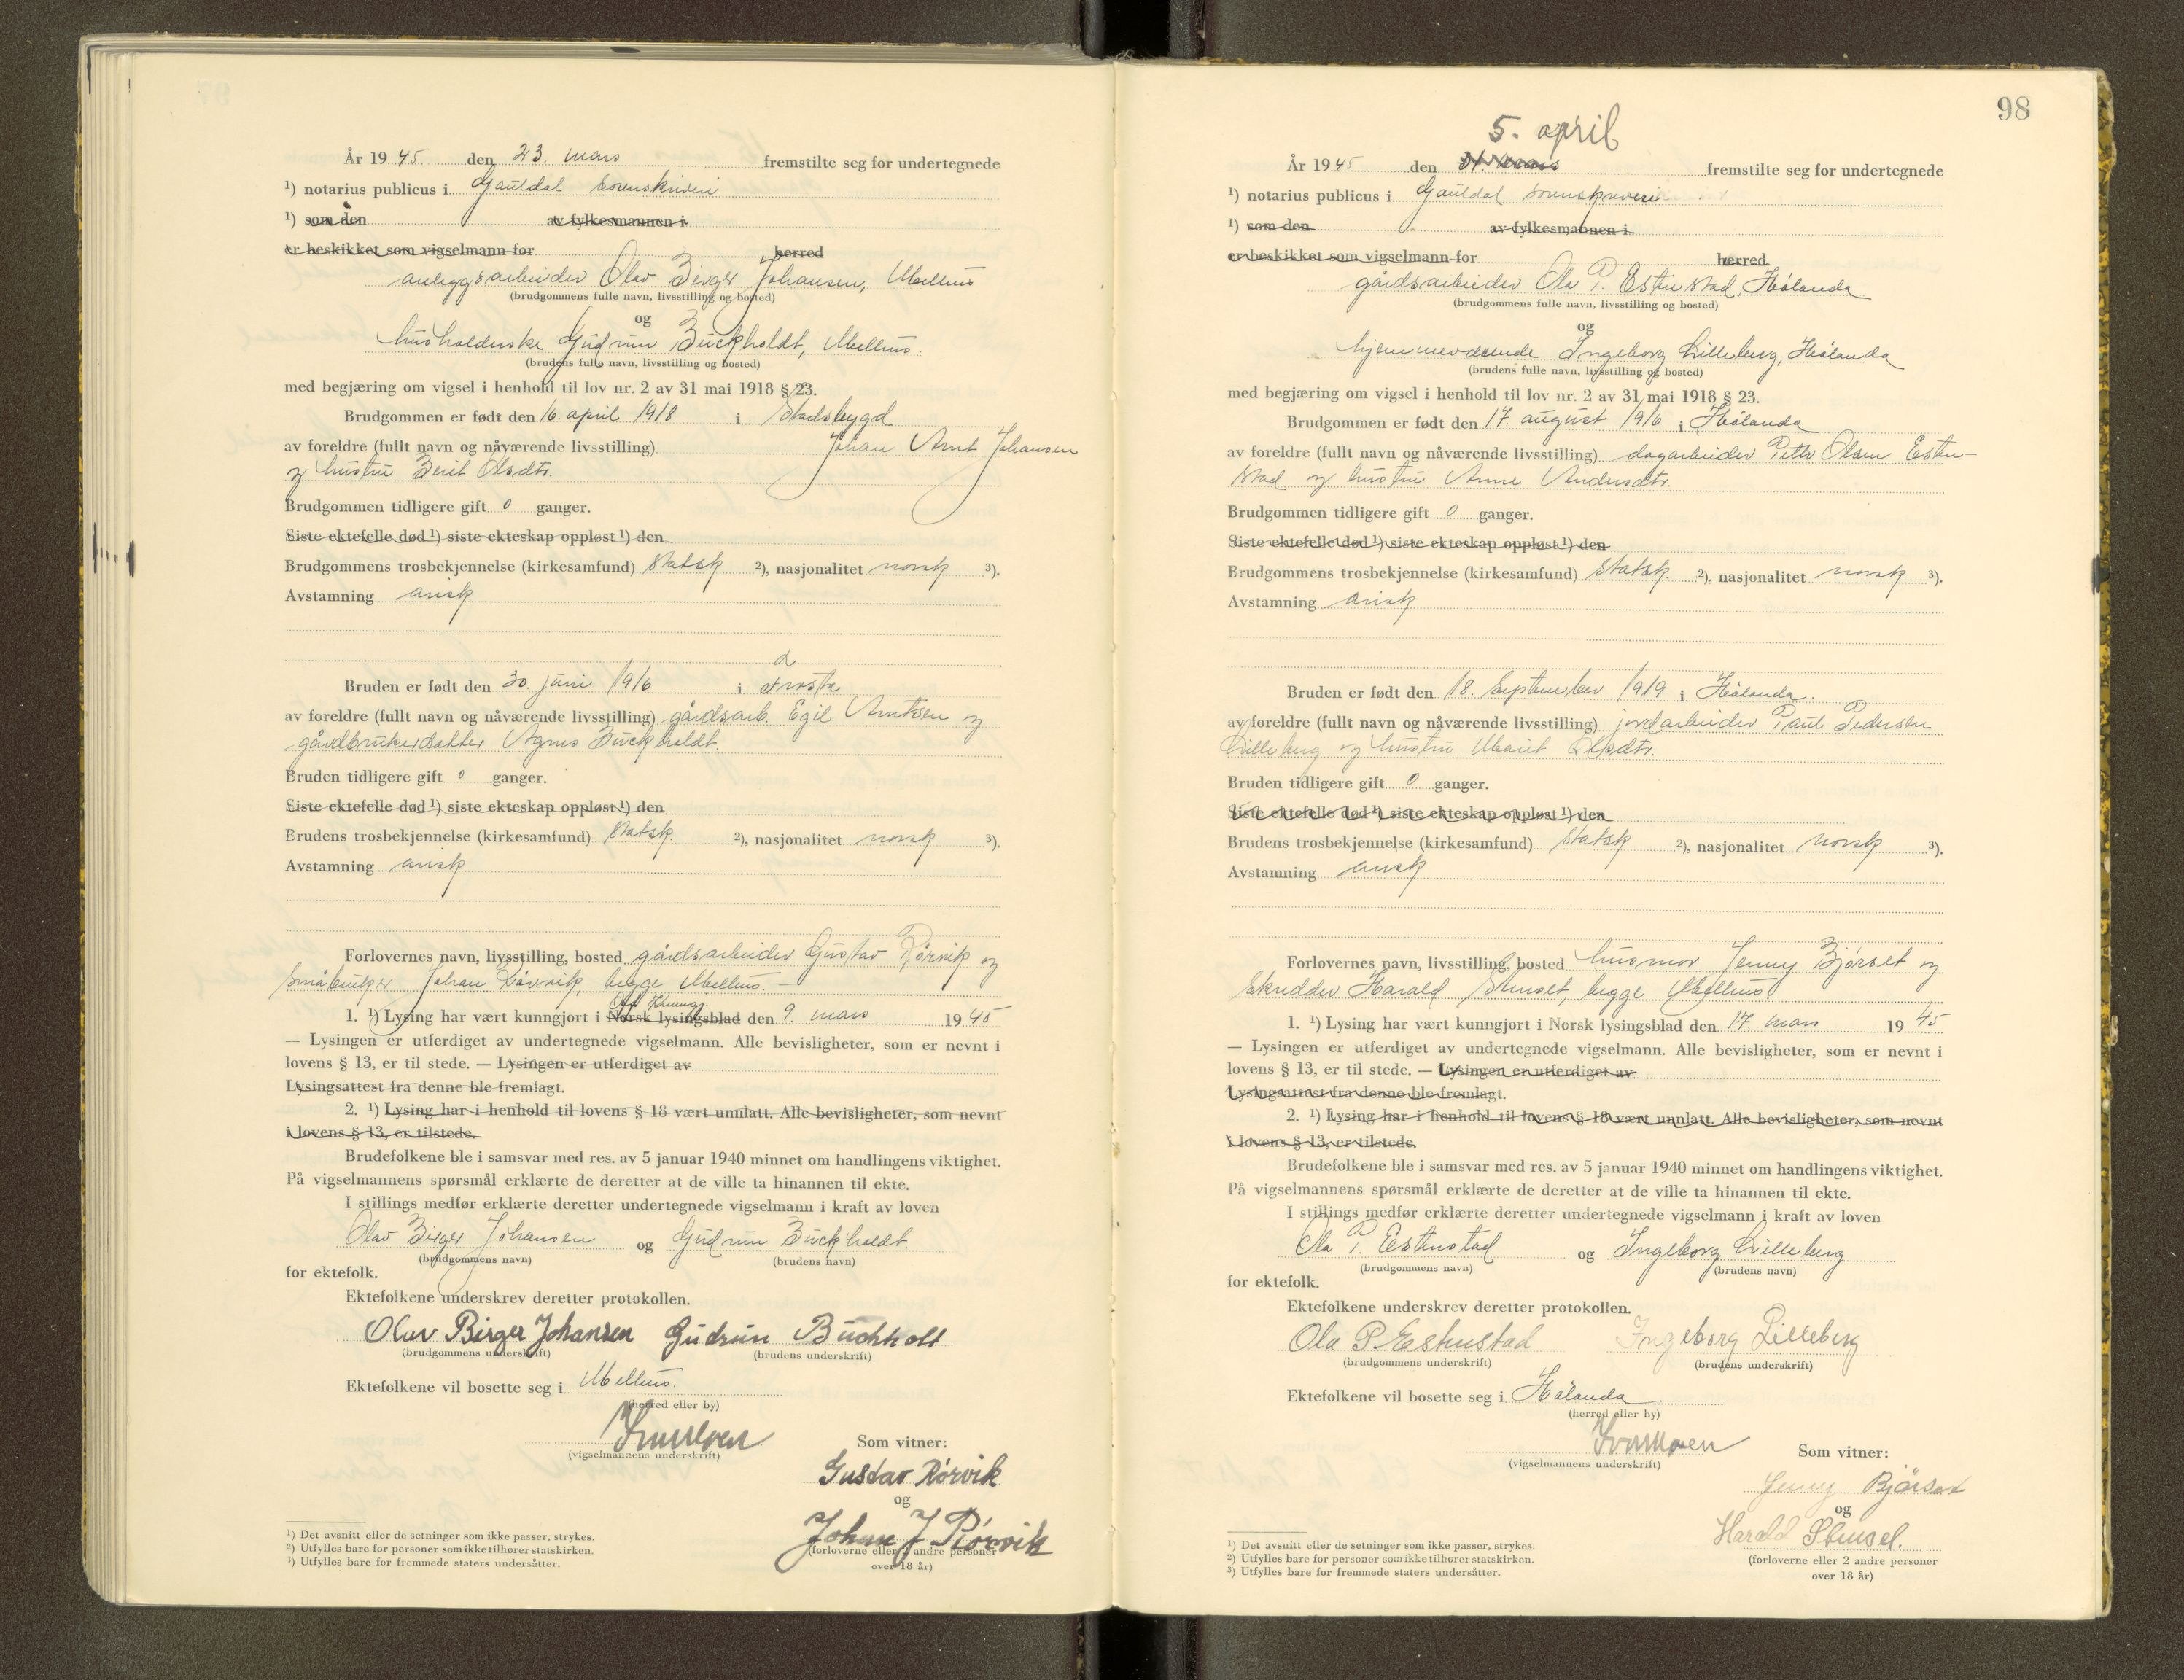 År 1945 den 23. mars fremstilte seg for undertegnede
¹) notarius publicus i Gauldal sorenskriveri
¹) som den av fylkesmannen i
er beskikket som vigselmann for herred
anleggsarbeider Olav Birger Johansen, Melhus
(brudgommens fulle navn, livsstilling og bosted)
og
husholderske Gudrun Buckholdt, Melhus.
(brudens fulle navn, livsstilling og bosted)
med begjæring om vigsel i henhold til lov nr. 2 av 31 mai 1918 § 23.
Brudgommen er født den 16. april 1918 i Stadsbygd
av foreldre (fullt navn og nåværende livsstilling) Johan Arnt Johansen
og hustru Berit Olsdtr.
Brudgommen tidligere gift 0 ganger.
Siste ektefelle død ¹) siste ekteskap oppløst ¹) den
Brudgommens trosbekjennelse (kirkesamfund) Statsk. ²), nasjonalitet norsk ³).
Avstamning arisk
Bruden er født den 30. juni 1916 i Frosta
av foreldre (fullt navn og nåværende livsstilling) gårdsarb. Egil Arntsen og
gårdbrukerdatter Agnes Buckholdt.
Bruden tidligere gift 0 ganger.
Siste ektefelle død ¹) siste ekteskap oppløst ¹) den
Brudens trosbekjennelse (kirkesamfund) Statsk. ²), nasjonalitet norsk ³).
Avstamning arisk
Forlovernes navn, livsstilling, bosted gårdsarbeider Gustav Rørvik og
småbruker Johan Rørvik, begge Melhus. —
1. ¹) Lysing har vært kunngjort i Norsk lysingsblad den 9. mars 1945
— Lysingen er utferdiget av undertegnede vigselmann. Alle bevisligheter, som er nevnt i
lovens § 13, er til stede. — Lysingen er utferdiget av
Lysingsattest fra denne ble fremlagt.
2. ¹) Lysing har i henhold til lovens § 18 vært unnlatt. Alle bevisligheter, som nevnt
i lovens § 13, er tilstede.
Brudefolkene ble i samsvar med res. av 5 januar 1940 minnet om handlingens viktighet.
På vigselmannens spørsmål erklærte de deretter at de ville ta hinannen til ekte.
I stillings medfør erklærte deretter undertegnede vigselmann i kraft av loven
Olav Birger Johansen og Gudrun Buckholdt.
(brudgommens navn) (brudens navn)
for ektefolk.
Ektefolkene underskrev deretter protokollen.
Olav Birger Johansen Gudrun Buchholt
(brudgommens underskrift) (brudens underskrift)
Ektefolkene vil bosette seg i Melhus.
(herred eller by)
(vigselmannens underskrift)
Som vitner:
Gustav Rørvik
og
Johan J Rörvik
(forloverne eller 2 andre personer
over 18 år)
¹) Det avsnitt eller de setninger som ikke passer, strykes.
²) Utfylles bare for personer som ikke tilhører statskirken.
³) Utfylles bare for fremmede staters undersåtter.
98
5. april
År 1945 den fremstilte seg for undertegnede
¹) notarius publicus i Gauldal sorenskriveri
¹) som den av fylkesmannen i
er beskikket som vigselmann for herred
gårdsarbeider Ola P. Estenstad, Hølanda
(brudgommens fulle navn, livsstilling og bosted)
og
hjemmeværende Ingeborg Lilleberg, Hølanda
(brudens fulle navn, livsstilling og bosted)
med begjæring om vigsel i henhold til lov nr. 2 av 31 mai 1918 § 23.
Brudgommen er født den 17. august 1916 i Hølanda
av foreldre (fullt navn og nåværende livsstilling) dagarbeider Petter Olsen Esten-
stad og hustru Anne Andersdtr.
Brudgommen tidligere gift 0 ganger.
Siste ektefelle død ¹) siste ekteskap oppløst ¹) den
Brudgommens trosbekjennelse (kirkesamfund) Statsk. ²), nasjonalitet norsk ³).
Avstamning arisk
Bruden er født den 18. september 1919 i Hølanda.
av foreldre (fullt navn og nåværende livsstilling) jordarbeider Paul Pedersen
Lilleberg og hustru Marit Olsdtr.
Bruden tidligere gift 0 ganger.
Siste ektefelle død ¹) siste ekteskap oppløst ¹) den
Brudens trosbekjennelse (kirkesamfund) Statsk ²), nasjonalitet norsk ³).
Avstamning arisk
Forlovernes navn, livsstilling, bosted husmor Jenny Bjørset og
skredder Harald Stenset, begge Melhus.
1. ¹) Lysing har vært kunngjort i Norsk lysingsblad den 17. mars 1945
— Lysingen er utferdiget av undertegnede vigselmann. Alle bevisligheter, som er nevnt i
lovens § 13, er til stede. — Lysingen er utferdiget av
Lysingsattest fra denne ble fremlagt.
2. ¹) Lysing har i henhold til lovens § 18 vært unnlatt. Alle bevisligheter, som nevnt
i lovens § 13, er tilstede.
Brudefolkene ble i samsvar med res. av 5 januar 1940 minnet om handlingens viktighet.
På vigselmannens spørsmål erklærte de deretter at de ville ta hinannen til ekte.
I stillings medfør erklærte deretter undertegnede vigselmann i kraft av loven
Ola P. Estenstad og Ingeborg Lilleberg
(brudgommens navn) (brudens navn)
for ektefolk.
Ektefolkene underskrev deretter protokollen.
Ola P. Estenstad Ingeborg Lilleberg
(brudgommens underskrift) (brudens underskrift)
Ektefolkene vil bosette seg i Hølanda.
(herred eller by)
(vigselmannens underskrift)
Som vitner:
Jenny Bjørset
og
Harald Stenset.
(forloverne eller 2 andre personer
over 18 år)
¹) Det avsnitt eller de setninger som ikke passer, strykes.
²) Utfylles bare for personer som ikke tilhører statskirken.
³) Utfylles bare for fremmede staters undersåtter.